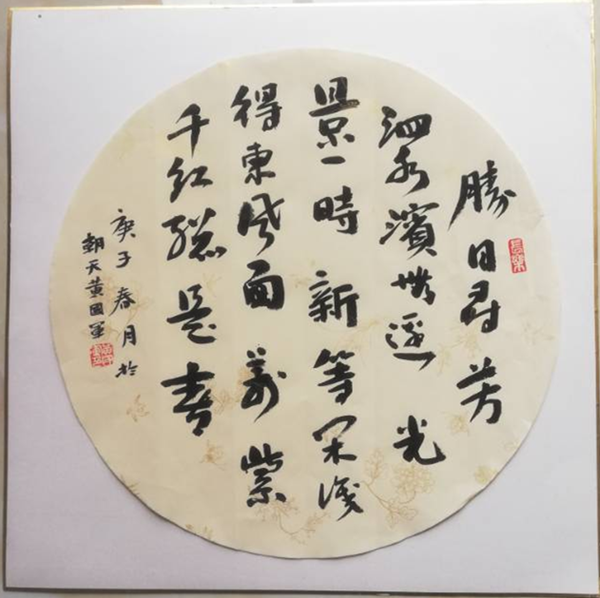 勝日尋芳
泗水濱無邊光
景一時新等閑識
得東風面萬紫
千紅總是春
庚子春月於
朝天黃國軍